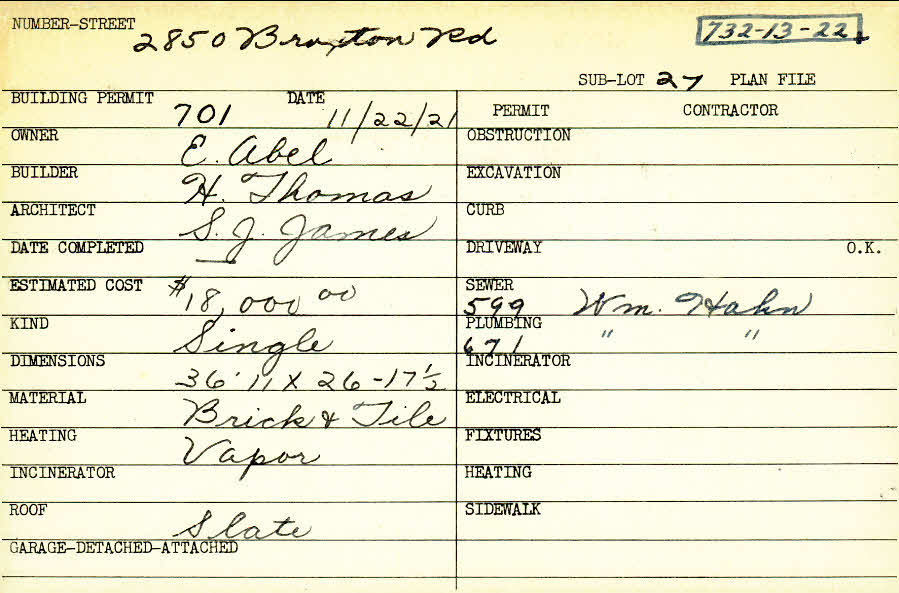 NUMBER-STREET 2850 Braxton Rd 732-13-22
SUB-LOT 27 PLAN FILE
BUILDING PERMIT 701 DATE 11/22/21
PERMIT CONTRACTOR
OWNER E. Abel
OBSTRUCTION
BUILDER H. Thomas
EXCAVATION
ARCHITECT S. J. James
CURB
DATE COMPLETED —
DRIVEWAY O.K.
ESTIMATED COST $18,000 00
SEWER 599 Wm. Hahn
KIND Single
PLUMBING 671 " "
DIMENSIONS 36' 11 X 26 - 17 1/2
INCINERATOR
MATERIAL Brick & Tile
ELECTRICAL
HEATING Vapor
FIXTURES
INCINERATOR
HEATING
ROOF Slate
SIDEWALK
GARAGE-DETACHED-ATTACHED